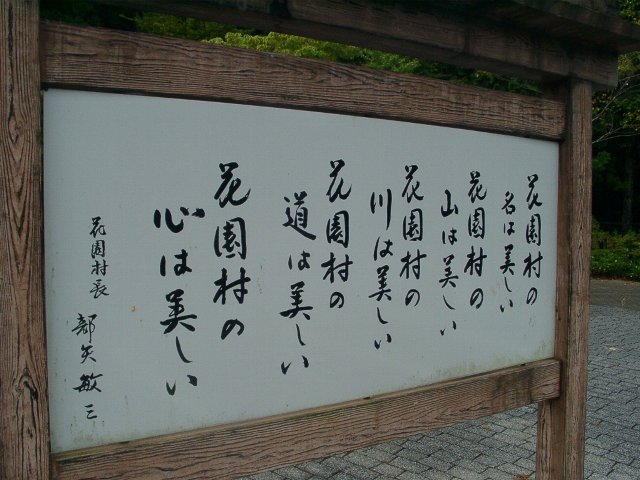 花園村の
名は美しい
花園村の
山は美しい
花園村の
川は美しい
花園村の
道は美しい
花園村の
心は美しい
花園村長
部矢敏三